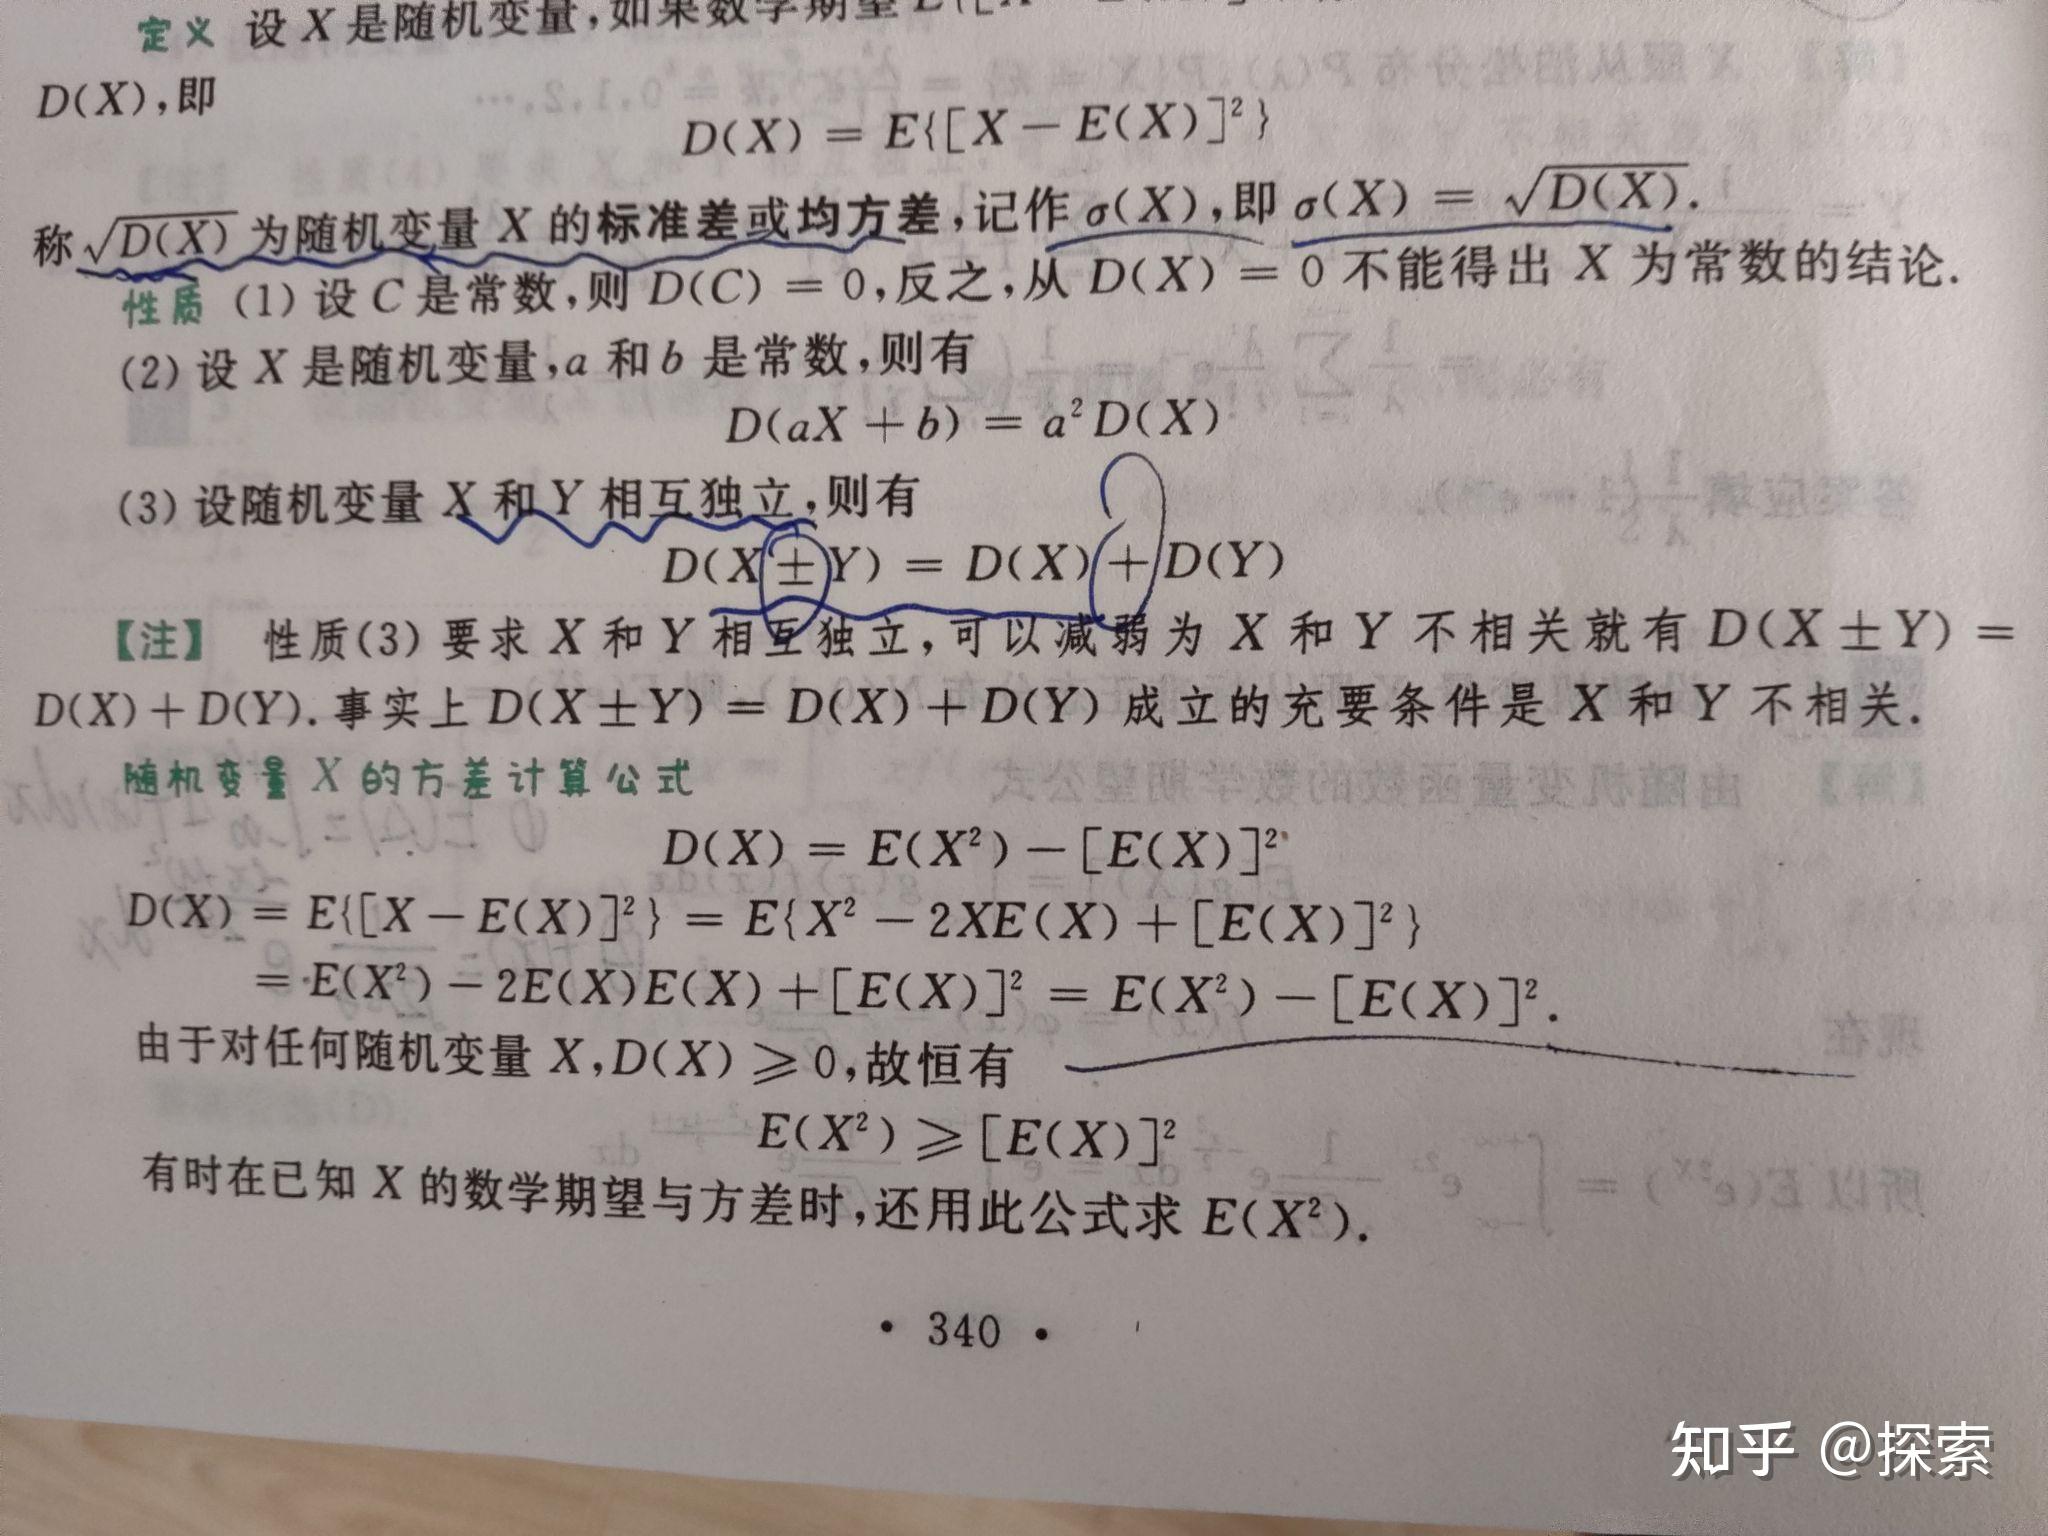 定义 设 X 是随机变量,如果数学期望
D(X),即
D(X) = E{[X − E(X)]²}
称 √D(X) 为随机变量 X 的标准差或均方差,记作 σ(X),即 σ(X) = √D(X).
性质 (1) 设 C 是常数,则 D(C) = 0,反之,从 D(X) = 0 不能得出 X 为常数的结论.
(2) 设 X 是随机变量,a 和 b 是常数,则有
D(aX + b) = a² D(X)
(3) 设随机变量 X 和 Y 相互独立,则有
D(X ± Y) = D(X) + D(Y)
【注】 性质(3) 要求 X 和 Y 相互独立,可以减弱为 X 和 Y 不相关就有 D(X ± Y) =
D(X) + D(Y). 事实上 D(X ± Y) = D(X) + D(Y) 成立的充要条件是 X 和 Y 不相关.
随机变量 X 的方差计算公式
D(X) = E(X²) − [E(X)]²
D(X) = E{[X − E(X)]²} = E{X² − 2XE(X) + [E(X)]²}
= E(X²) − 2E(X)E(X) + [E(X)]² = E(X²) − [E(X)]².
由于对任何随机变量 X,D(X) ≥ 0,故恒有
E(X²) ≥ [E(X)]²
有时在已知 X 的数学期望与方差时,还用此公式求 E(X²).
• 340 •
知乎 @探索